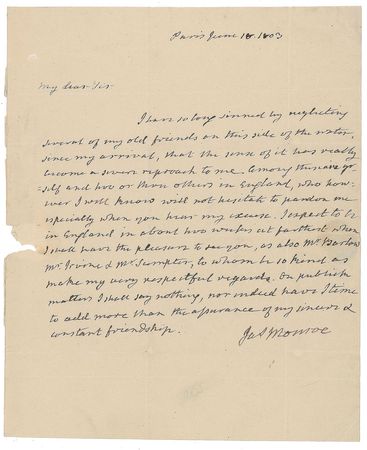 Paris June 18. 1803
My dear Sir
I have so long sinned by neglecting
several of my old friends on this side of the water,
since my arrival, that the sense of it has really
become a severe reproach to me. Among these are yr
self and two or three others in England, who how-
ever I well know will not hesitate to pardon me
especially when you hear my excuse. I expect to be
in England in about two weeks at farthest when
I shall have the pleasure to see you, as also Mr. Barlow
Mr. Irvine & Mr. Sumpter, to whom be so kind as
make my very respectful regards. On publick
matters I shall say nothing, nor indeed have I time
to add more than the assurance of my sincere &
constant friendship.
Jas Monroe